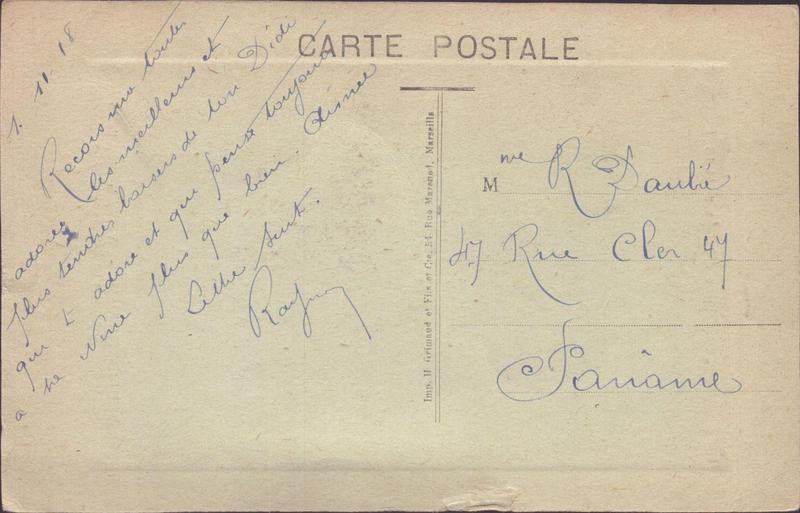 CARTE POSTALE
1. 11. 18
Recois ma toute
adorée les meilleurs et
plus tendres baisers de ton Didi
qui t adore et qui pense toujours
a sa Nine plus que bien aimée
Lettre suit.
Imp. H. Grimaud et Fils et Cie, 54, Rue Marengo, Marseille
Mme R Daubié
47 Rue Cler 47
Paname